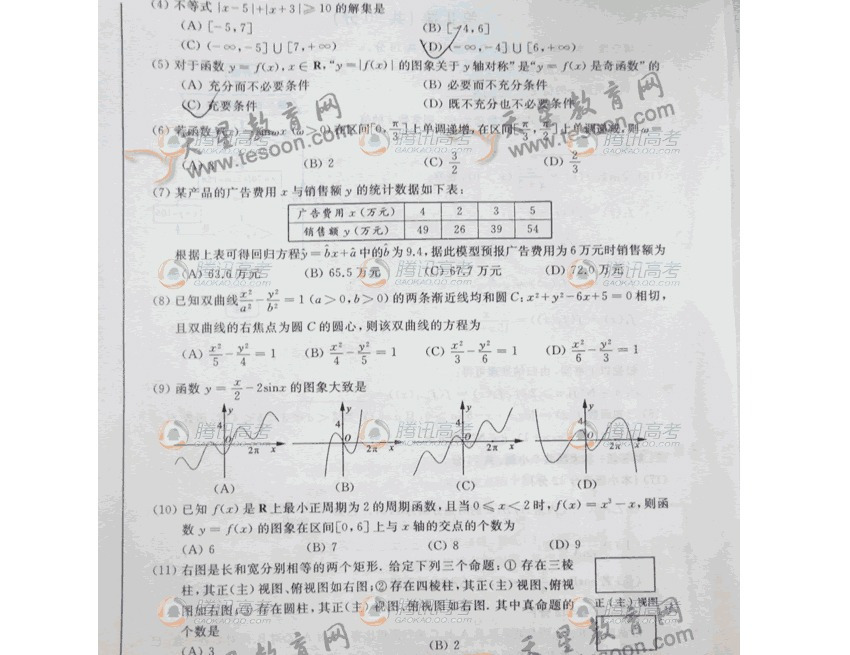 (4) 不等式 |x-5|+|x+3|⩾10 的解集是
(A) [-5,7] (B) [-4,6]
(C) (-∞,-5]∪[7,+∞) (D) (-∞,-4]∪[6,+∞)
(5) 对于函数 y=f(x),x∈R,“y=|f(x)|的图象关于 y 轴对称”是“y=f(x)是奇函数”的
(A) 充分而不必要条件 (B) 必要而不充分条件
(C) 充要条件 (D) 既不充分也不必要条件
(6) 若函数 f(x)=sinωx (ω>0)在区间[0,π/3]上单调递增,在区间[π/3,π/2]上单调递减,则ω=
(B) 2 (C) 3/2 (D) 2/3
(7) 某产品的广告费用 x 与销售额 y 的统计数据如下表:
广告费用 x (万元) 4 2 3 5
销售额 y (万元) 49 26 39 54
根据上表可得回归方程ŷ=b̂x+â中的b̂为9.4,据此模型预报广告费用为6万元时销售额为
(A) 63.6 万元 (B) 65.5 万元 (C) 67.7 万元 (D) 72.0 万元
(8) 已知双曲线 x²/a²-y²/b²=1 (a>0,b>0)的两条渐近线均和圆 C:x²+y²-6x+5=0相切,
且双曲线的右焦点为圆 C 的圆心,则该双曲线的方程为
(A) x²/5-y²/4=1 (B) x²/4-y²/5=1 (C) x²/3-y²/6=1 (D) x²/6-y²/3=1
(9) 函数 y=x/2-2sinx 的图象大致是
y 4 O 2π x y 4 O x y 4 O 2π x y 4 O 2π x
(A) (B) (C) (D)
(10) 已知 f(x)是 R 上最小正周期为 2 的周期函数,且当 0⩽x<2 时,f(x)=x³-x,则函
数 y=f(x)的图象在区间[0,6]上与 x 轴的交点的个数为
(A) 6 (B) 7 (C) 8 (D) 9
(11) 右图是长和宽分别相等的两个矩形.给定下列三个命题:①存在三棱
柱,其正(主)视图、俯视图如右图;②存在四棱柱,其正(主)视图、俯视
图如右图;③存在圆柱,其正(主)视图、俯视图如右图.其中真命题的
正(主)视图
个数是
(A) 3 (B) 2
天星教育网
www.tesoon.com
腾讯高考
GAOKAO.QQ.COM